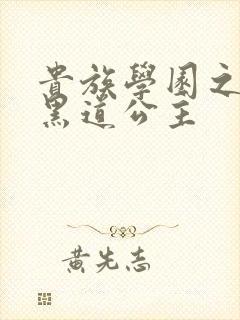 貴族學園之
黑道公主
黃先志